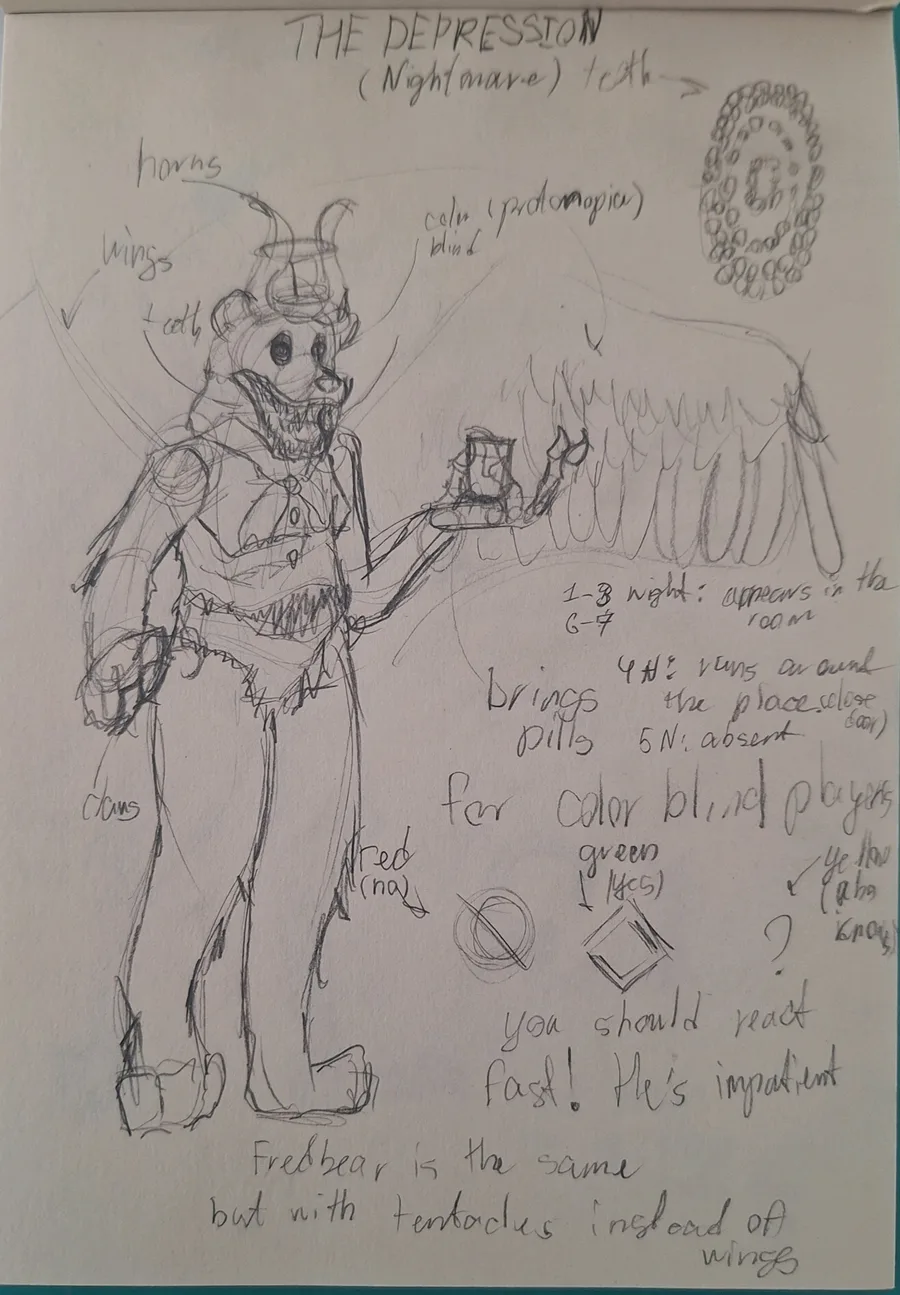 THE DEPRESSION
(Nightmare)
teeth
horns
color (protonopia)
blind
wings
teeth
1-3 night: appears in the
6-7 room
4N: runs around
the place (close
door)
5N: absent
brings
pills
claws
for color blind players
red
(no)
green
(yes)
yellow
?
you should react
fast! He's impatient
Fredbear is the same
but with tentacles instead of
wings